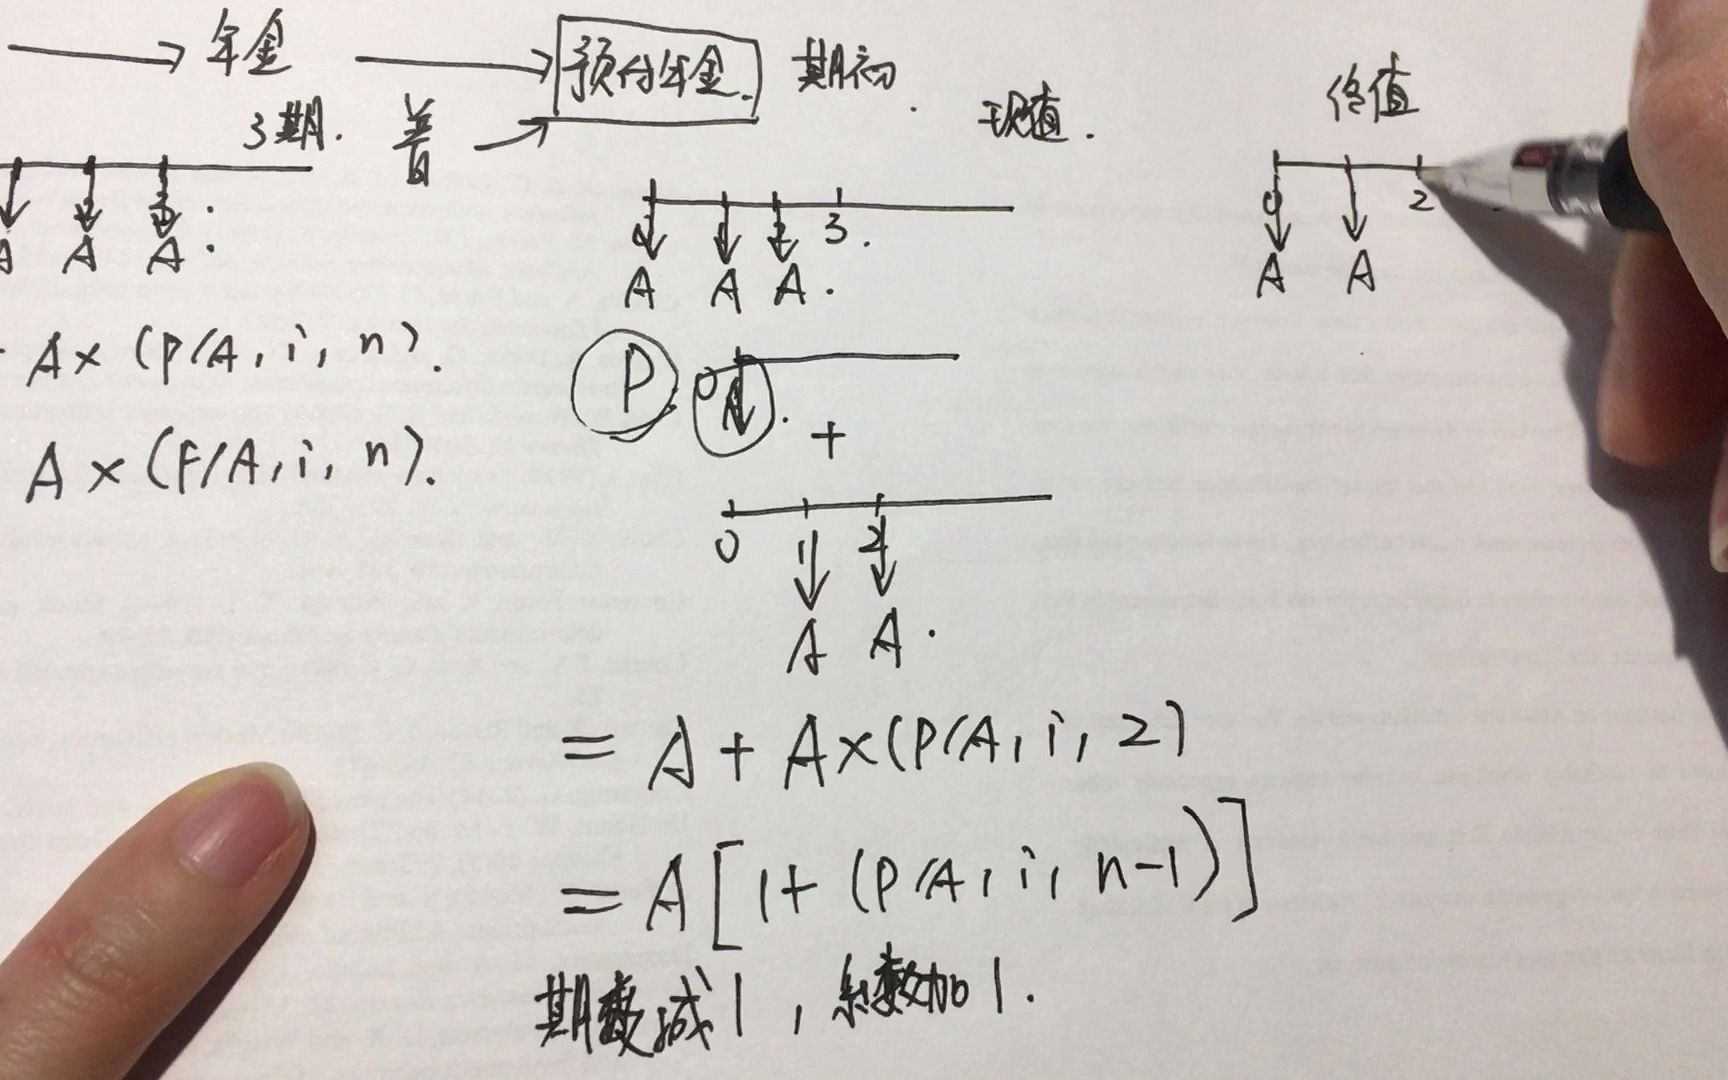 年金 预付年金. 期初.
3期. 普
现值.
终值
2 3.
A A A.
0 1 2 3.
A A A.
0 2
A A
A×(P/A, i, n).
P 0 A.
+
A×(F/A, i, n).
0 1 2
A A.
= A + A×(P/A, i, 2)
= A[1+(P/A, i, n-1)]
期数减1，系数加1.